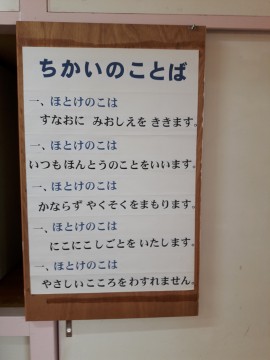 ちかいのことば
一、ほとけのこは
すなおに みおしえを ききます。
一、ほとけのこは
いつも ほんとうのことをいいます。
一、ほとけのこは
かならず やくそくをまもります。
一、ほとけのこは
にこにこしごとを いたします。
一、ほとけのこは
やさしいこころを わすれません。